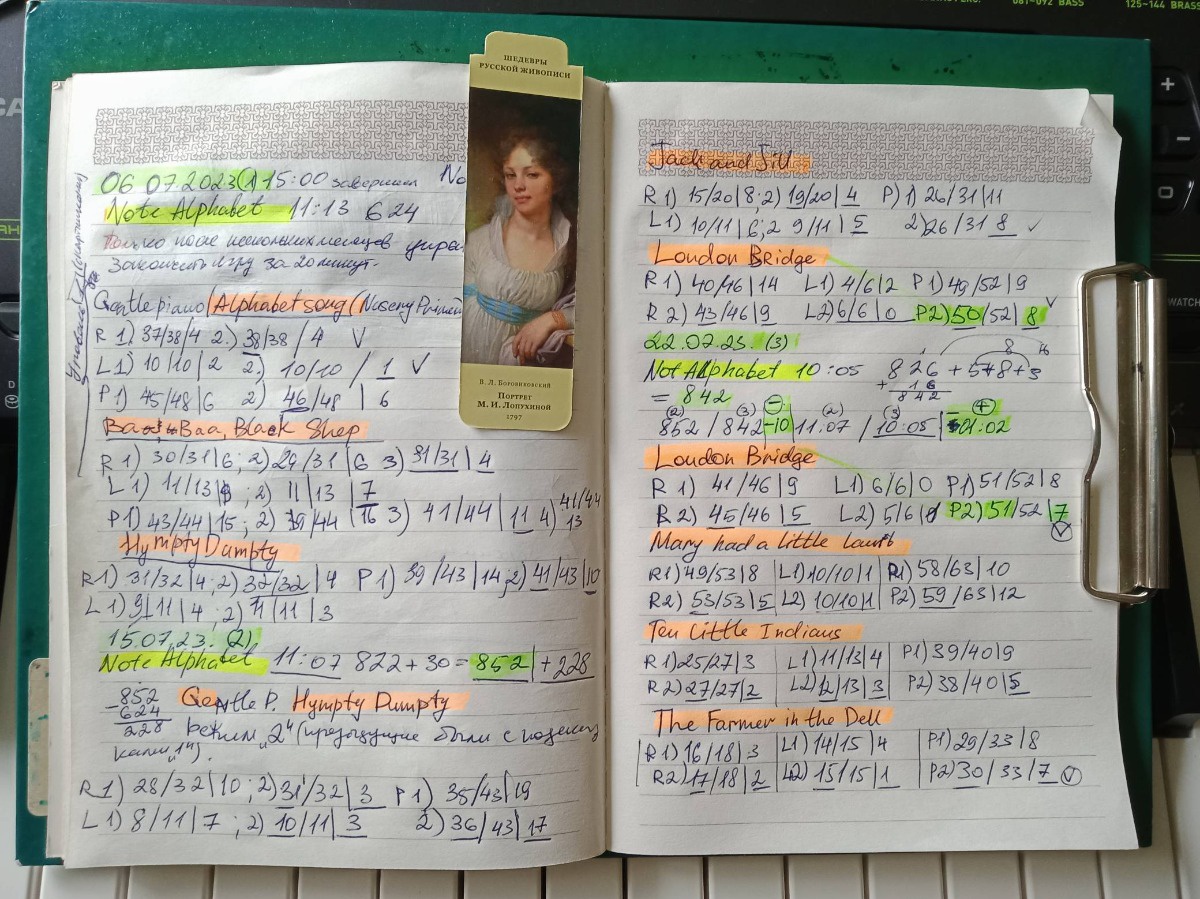 081-092 BASS
125-144 BRASS
06.07.2023(1)-15:00 завершили No
Note Alphabet 11:13 624
только после нескольких месяцев
Закончить игру за 20 минут.
Gentle piano Alphabet song (Nusery Prime
R 1) 37/38/4 2.) 38/38 / 4 V
L1) 10/10/2 2.) 10/10 / 1 ✓
P1) 45/48|6 2) 46/48 | 6
Baa, Black Shep
R 1) 30/31|6; 2) 29/31|6 3) 31/31|4
L 1) 11/13|9; 2) 11|13|7
P1) 43/44|15; 2) 39/44|16 3) 41/44|11 4) 41/44 13
Hympty Dumpty
R1) 31/32|4; 2) 32/32|4 P1) 39/43|14; 2) 41/43|10
L1) 9/11|4; 2) 11|11|3
15.07.23. (2)
Note Alphabet 11:07 822+30=852|+228
-852
624
228
Gentle P. Hympty Dumpty
режим "2" (предыдущие были с подсказ
R1) 28/32|10; 2) 31/32|3 P1) 35/43|19
L1) 8/11|7; 2) 10/11|3 2) 36/43|17
ШЕДЕВРЫ
РУССКОЙ ЖИВОПИСИ
В. Л. Боровиковский
Портрет
М. И. Лопухиной
1797
Jack and Jill
R 1) 15/20|8; 2) 19/20|4 P) 1) 26/31|11
L 1) 10/11|6; 2 9/11|5 2) 26/31 8 ✓
London Bridge
R 1) 40/46|14 L1) 4/6|2 P1) 49/52|9
R 2) 43/46|9 L2) 6/6|0 P2) 50/52|8 V
22.07.23. (3)
Not Alphabet 10:05 826+548+3
+ 16
842
= 842
(2) (3) (2) (3)
852/842 -10|11:07/10:05| 01:02
London Bridge
R 1) 41/46|9 L1) 6/6|0 P1) 51/52|8
R 2) 45/46|5 L2) 5/6|0 P2) 51/52|7
Mary had a little lamb
R1) 49/53|8 L1) 10/10|1 P1) 58/63|10
R2) 53/53|5 L2) 10/10|1 P2) 59/63|12
Ten Little Indians
R1) 25/27|3 L1) 11/13|4 P1) 39/40|9
R2) 27/27|2 L2) 12/13|3 P2) 38/40|5
The Farmer in the Dell
R1) 16/18|3 L1) 14/15|4 P1) 29/33|8
R2) 17/18|2 L2) 15/15|1 P2) 30/33/7
WATCH